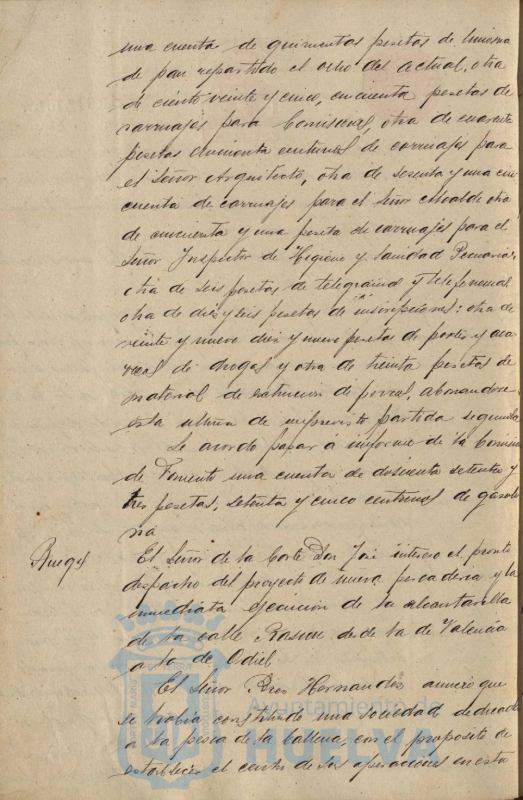 una cuenta de quinientas pesetas de limosna
de pan repartido el ocho del actual, otra
de ciento veinte y cinco, cincuenta pesetas de
carruajes para Comisiones, otra de cuarenta
pesetas cincuenta centimos de carruajes para
el Señor Arquitecto, otra de sesenta y una cin
cuenta de carruajes para el Señor Alcalde otra
de cincuenta y una peseta de carruajes para el
Señor Inspector de Higiene y Sanidad Pecuaria,
otra de seis pesetas de telegramas y telefonemas
otra de diez y seis pesetas de inscripciones: otra de
veinte y nueve diez y nueve pesetas de portes y aca
rreos de drogas y otra de treinta pesetas de
material de extincion de perros, abonandose
esta ultima de imprevisto partida segunda
Se acordo pasar á informe de la Comision
de Fomento una cuenta de doscientas setenta y
tres pesetas, setenta y cinco centimos de gasoli
na
Ruegos
El Señor de la Corte Don José intereso el pronto
despacho del proyecto de nueva pescaderia y la
inmediata ejecucion de la alcantarilla
de la calle Rascon desde la de Valencia
a la de Odiel
El Señor Peres Hernandes anuncio que
se habia constituido una sociedad dedicada
a la pesca de la ballena, con el proposito de
establecer el centro de sus operaciones en esta
Ayuntamiento
HUELVA